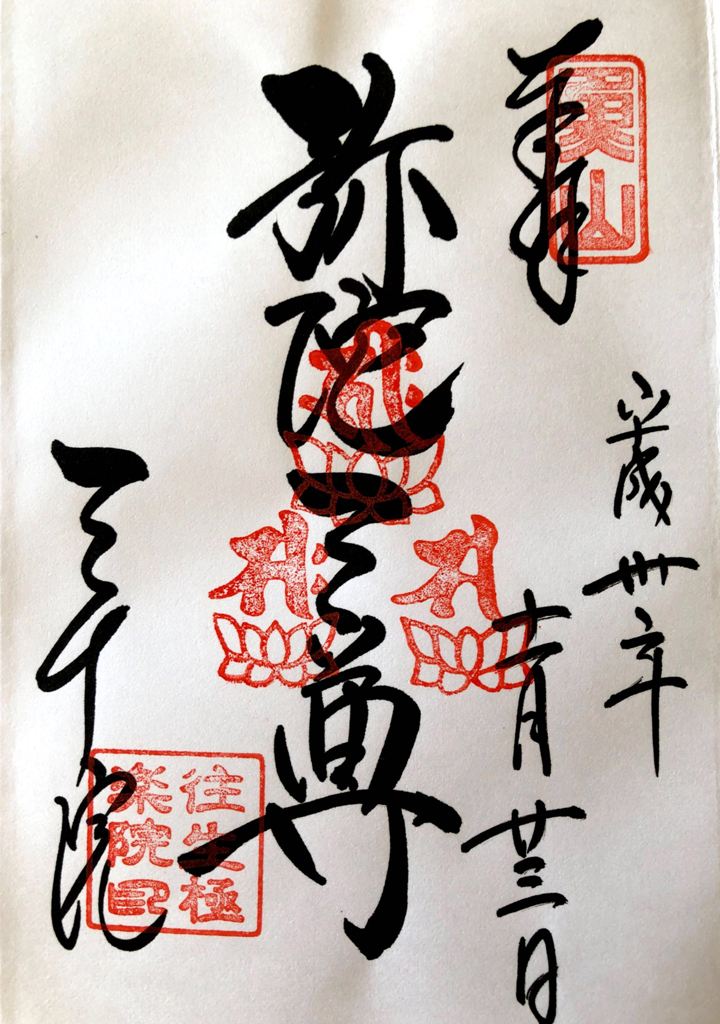 奉拝
魚山
平成卅年
十一月廿三日
弥陀三尊
三千院
往生極
楽院印